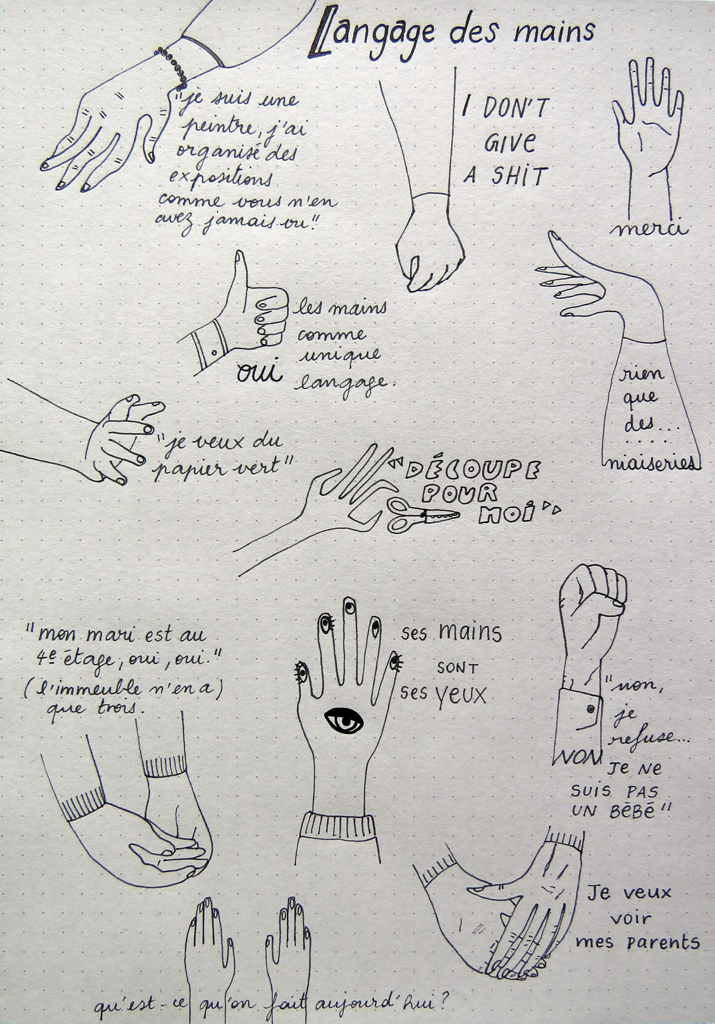 Langage des mains
"je suis une
peintre, j'ai
organisé des
expositions
comme vous n'en
avez jamais vu".
I DON'T
GIVE
A SHIT
merci
les mains
comme
unique
langage.
oui
rien
que
des...
.....
niaiseries
"je veux du
papier vert"
"DÉCOUPE
POUR
MOI"
"mon mari est au
4e étage, oui, oui."
(l'immeuble n'en a)
que trois.
ses mains
SONT
ses yeux
"non,
je
refuse...
NON
JE NE
SUIS PAS
UN BÉBÉ"
Je veux
voir
mes parents
qu'est-ce qu'on fait aujourd'hui?